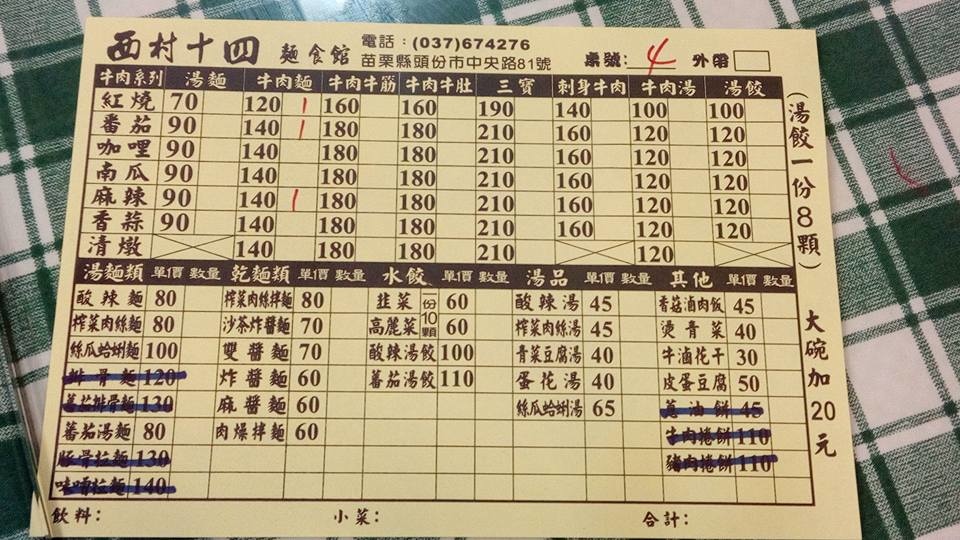 西村十四 麵食館 電話：(037)674276 桌號：4 外帶
苗栗縣頭份市中央路81號
牛肉系列 湯麵 牛肉麵 牛肉牛筋 牛肉牛肚 三寶 刺身牛肉 牛肉湯 湯餃
紅燒 70 120 1 160 160 190 140 100 100
番茄 90 140 1 180 180 210 160 120 120
咖哩 90 140 180 180 210 160 120 120
南瓜 90 140 180 180 210 160 120 120
麻辣 90 140 1 180 180 210 160 120 120
香蒜 90 140 180 180 210 160 120 120
清燉 140 180 180 210 120
湯麵類 單價 數量 乾麵類 單價 數量 水餃 單價 數量 湯品 單價 數量 其他 單價 數量
酸辣麵 80 榨菜肉絲拌麵 80 韭菜 一份10顆 60 酸辣湯 45 香菇滷肉飯 45
榨菜肉絲麵 80 沙茶炸醬麵 70 高麗菜 60 榨菜肉絲湯 45 燙青菜 40
絲瓜蛤蜊麵 100 雙醬麵 70 酸辣湯餃 100 青菜豆腐湯 40 牛滷花干 30
排骨麵 120 炸醬麵 60 番茄湯餃 110 蛋花湯 40 皮蛋豆腐 50
番茄排骨麵 130 麻醬麵 60 絲瓜蛤蜊湯 65 蔥油餅 45
番茄湯麵 80 肉燥拌麵 60 牛肉捲餅 110
豚骨拉麵 130 豬肉捲餅 110
味噌拉麵 140
飲料： 小菜： 合計：
(湯餃一份8顆)
大碗加20元